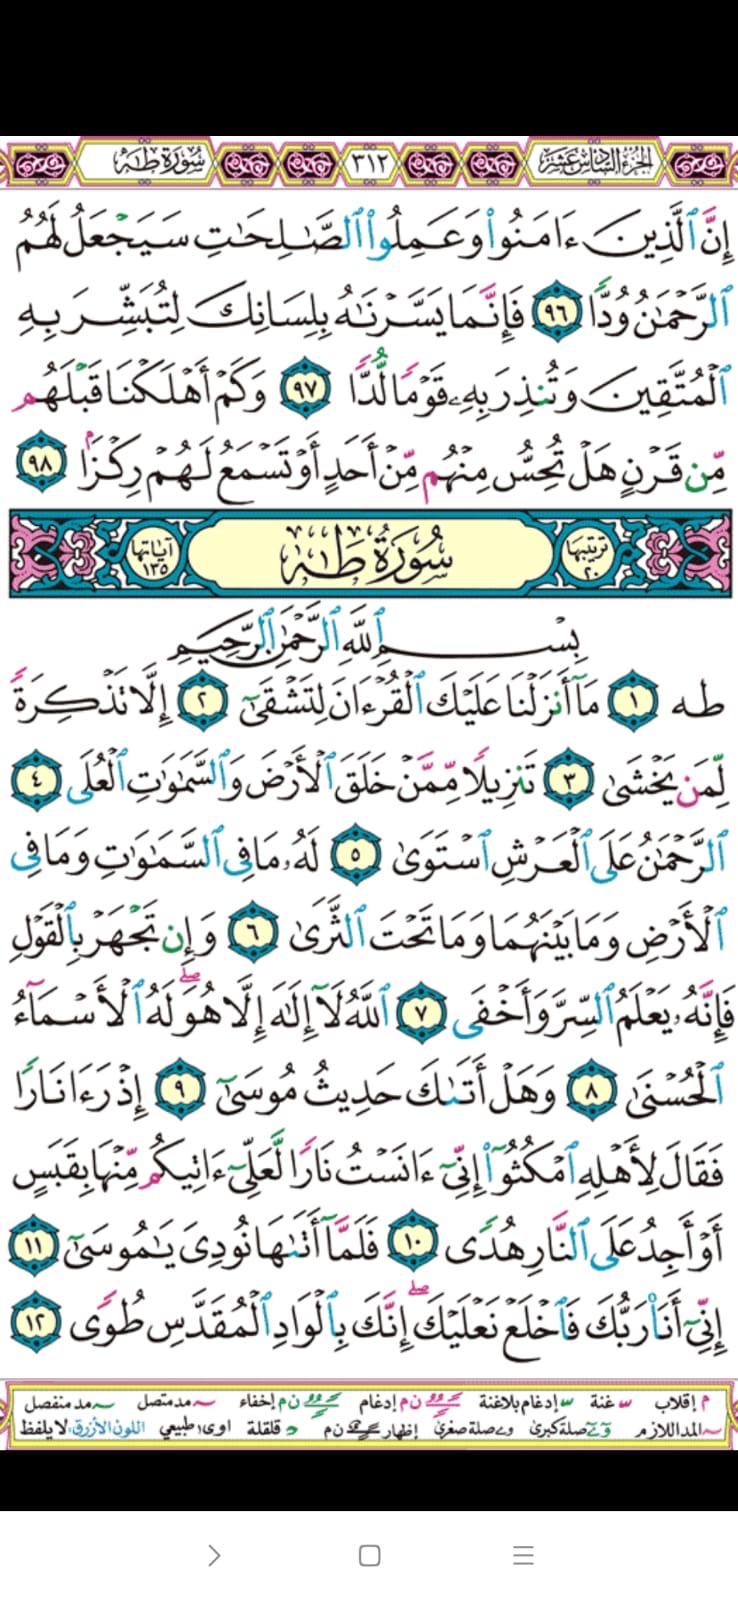 الجزء السادس عشر ٣١٢ سورة طه
إِنَّ ٱلَّذِينَ ءَامَنُوا۟ وَعَمِلُوا۟ ٱلصَّـٰلِحَـٰتِ سَيَجْعَلُ لَهُمُ
ٱلرَّحْمَـٰنُ وُدًّا ٩٦ فَإِنَّمَا يَسَّرْنَـٰهُ بِلِسَانِكَ لِتُبَشِّرَ بِهِ
ٱلْمُتَّقِينَ وَتُنذِرَ بِهِۦ قَوْمًا لُّدًّا ٩٧ وَكَمْ أَهْلَكْنَا قَبْلَهُم
مِّن قَرْنٍ هَلْ تُحِسُّ مِنْهُم مِّنْ أَحَدٍ أَوْ تَسْمَعُ لَهُمْ رِكْزًۢا ٩٨
ترتيبها ٢٠ سُورَةُ طه آياتها ١٣٥
بِسْمِ ٱللَّهِ ٱلرَّحْمَـٰنِ ٱلرَّحِيمِ
طه ١ مَآ أَنزَلْنَا عَلَيْكَ ٱلْقُرْءَانَ لِتَشْقَىٰٓ ٢ إِلَّا تَذْكِرَةً
لِّمَن يَخْشَىٰ ٣ تَنزِيلًا مِّمَّنْ خَلَقَ ٱلْأَرْضَ وَٱلسَّمَـٰوَٰتِ ٱلْعُلَى ٤
ٱلرَّحْمَـٰنُ عَلَى ٱلْعَرْشِ ٱسْتَوَىٰ ٥ لَهُۥ مَا فِى ٱلسَّمَـٰوَٰتِ وَمَا فِى
ٱلْأَرْضِ وَمَا بَيْنَهُمَا وَمَا تَحْتَ ٱلثَّرَىٰ ٦ وَإِن تَجْهَرْ بِٱلْقَوْلِ
فَإِنَّهُۥ يَعْلَمُ ٱلسِّرَّ وَأَخْفَى ٧ ٱللَّهُ لَآ إِلَـٰهَ إِلَّا هُوَ ۖ لَهُ ٱلْأَسْمَآءُ
ٱلْحُسْنَىٰ ٨ وَهَلْ أَتَىٰكَ حَدِيثُ مُوسَىٰٓ ٩ إِذْ رَءَا نَارًا
فَقَالَ لِأَهْلِهِ ٱمْكُثُوٓا۟ إِنِّىٓ ءَانَسْتُ نَارًا لَّعَلِّىٓ ءَاتِيكُم مِّنْهَا بِقَبَسٍ
أَوْ أَجِدُ عَلَى ٱلنَّارِ هُدًى ١٠ فَلَمَّآ أَتَىٰهَا نُودِىَ يَـٰمُوسَىٰٓ ١١
إِنِّىٓ أَنَا۠ رَبُّكَ فَٱخْلَعْ نَعْلَيْكَ ۖ إِنَّكَ بِٱلْوَادِ ٱلْمُقَدَّسِ طُوًى ١٢
م إقلاب غنة إدغام بلاغنة ن م إدغام ن م إخفاء مد متصل مد منفصل
المد اللازم صلة كبرى صلة صغرى إظهار ن م قلقلة اوى طبيعي اللون الأزرق: لا يلفظ